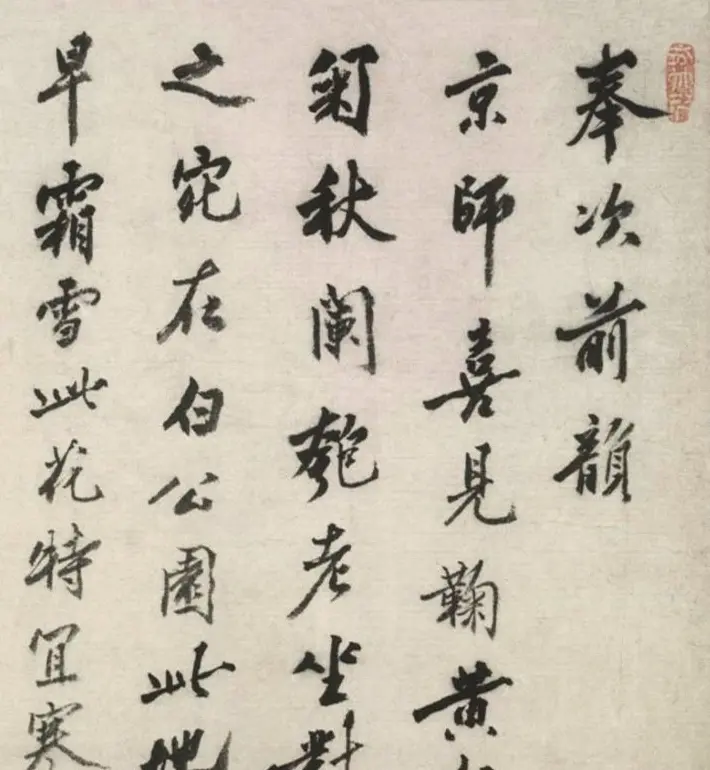 奉次前韻
京師喜見鞠黄
菊秋闌匏老坐對
之宛在白公園此地
早霜雪此花特宜寒